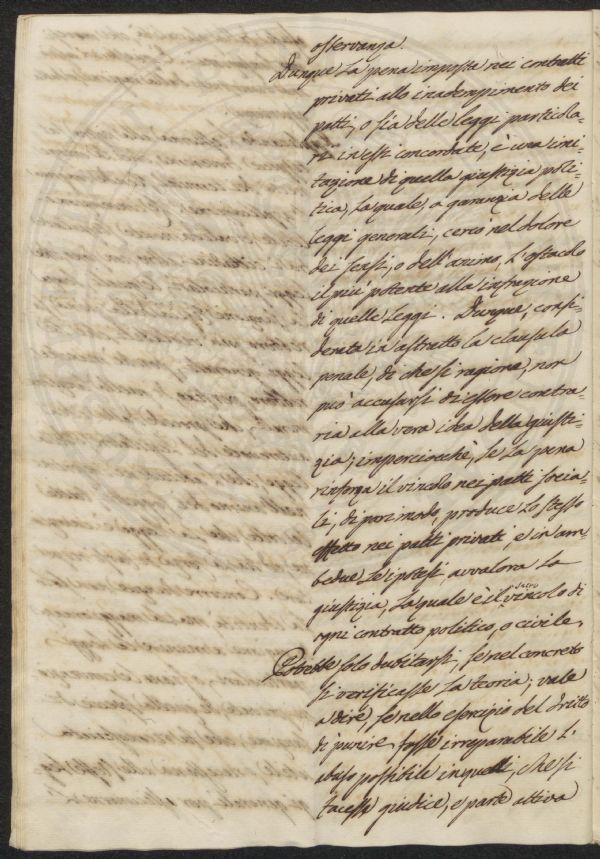 osservanza.
Dunque la pena imposta nei contratti
privati allo inadempimento dei
patti, o sia delle leggi particola-
ri in essi concordate, è una imi-
tazione di quella giustizia poli-
tica, la quale, a garanzia delle
leggi generali, cercò nel dolore
dei sensi, o dell'animo, l'ostacolo
il più potente alla infrazione
di quelle leggi. Dunque, consi-
derata in astratto la clausala
penale, di che si ragiona, non
può accusarsi di essere contra-
ria alla vera idea della giusti-
zia; imperciocchè, se la pena
rinforza il vincolo nei patti socia-
li, di pari modo, produce lo stesso
effetto nei patti privati, e in am-
bedue le ipotesi avvalora la
giustizia, la quale è il sacro vincolo di
ogni contratto politico, o civile.
Potrebbe solo dubitarsi, se nel concreto
si verificasse la teoria; vale
a dire, se nello esercizio del dritto
di punire, fosse irreparabile l'
abuso possibile in quelli, che si
facesse giudice, e parte attiva